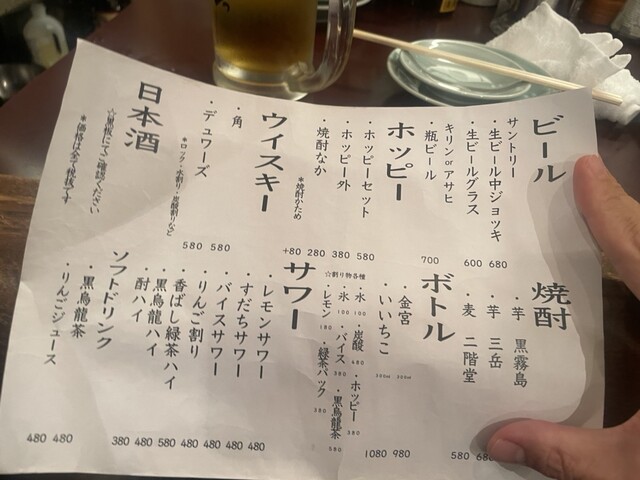 ビール
サントリー
・生ビール中ジョッキ 680
・生ビールグラス 600
キリン or アサヒ
・瓶ビール 700
ホッピー
・ホッピーセット 580
・ホッピー外 380
・焼酎なか 280
*焼酎かため +80
ウイスキー
・角 580
・デュワーズ 580
*ロック・水割り・炭酸割りなど
日本酒
☆黒板にてご確認ください
*価格は全て税抜です
焼酎
・芋 黒霧島
・芋 三岳 680
・麦 二階堂 580
ボトル
・金宮 980
・いいちこ 1080
☆割り物各種
・水 100
・炭酸 480
・ホッピー 380
・氷 100
・バイス 380
・黒烏龍茶 580
・レモン 180
・緑茶パック 380
サワー
・レモンサワー 480
・すだちサワー 480
・バイスサワー 480
・りんご割り 480
・香ばし緑茶ハイ 480
・黒烏龍ハイ 580
・酎ハイ 380
ソフトドリンク
・黒烏龍茶 480
・りんごジュース 480